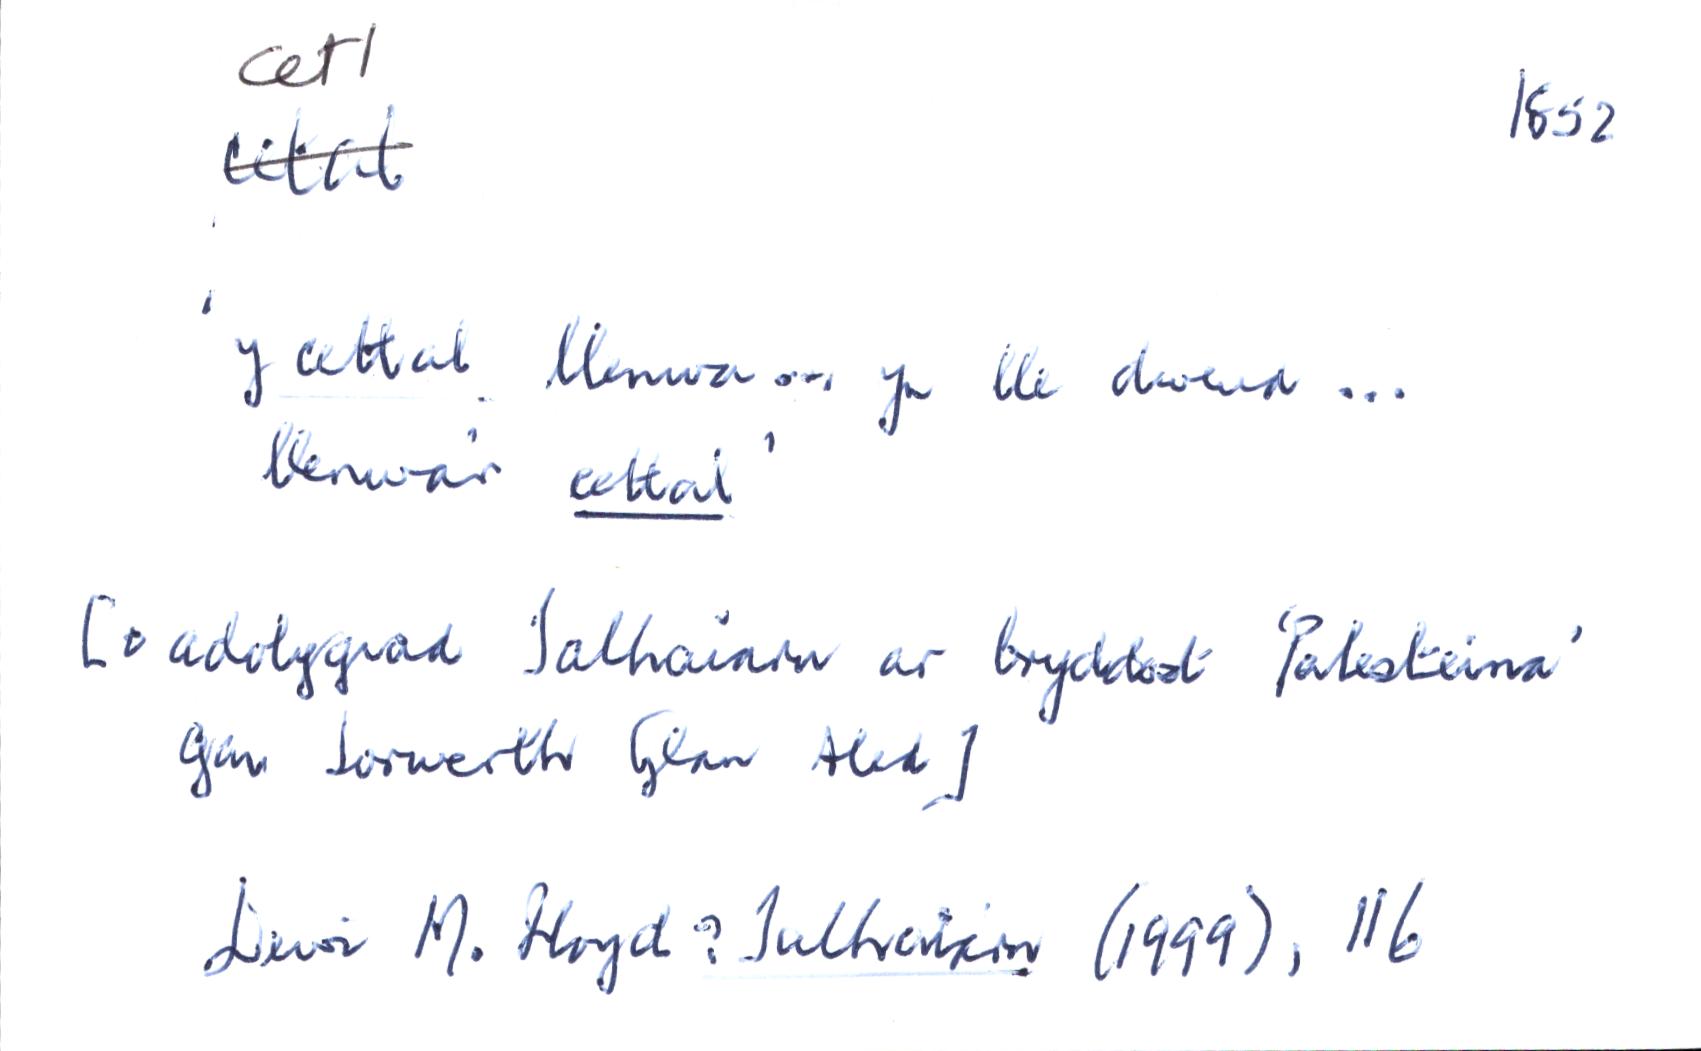 cetl
1852
cetal
'y cettal llenwa ... yn lle dweud ...
llenwa'r cettal'
[o adolygiad Talhaiarn ar bryddest 'Palesteina'
gan Iorwerth Glan Aled]
Dewi M. Lloyd: Talhaiarn (1999), 116